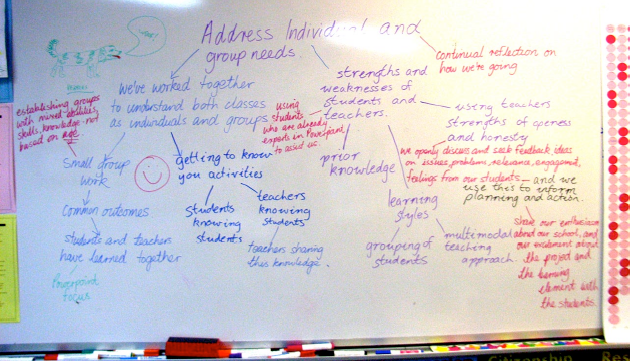 Address Individual and
group needs.
continual reflection on
how we're going
We've worked together
to understand both classes
as individuals and groups
establishing groups
with mixed abilities,
skills, knowledge - not
based on age
Small group
work
Common outcomes
students and teachers
have learned together
Powerpoint
focus
getting to know
you activities
students
knowing
students
teachers
knowing
students
teachers sharing
this knowledge.
strengths and
weaknesses of
students and
teachers.
using
students
who are already
experts in Powerpoint
to assist us.
prior
knowledge
learning
styles
grouping of
students
multimodal
teaching
approach
using teachers
strengths of openess
and honesty
we openly discuss and seek feedback ideas
on issues, problems, relevance, engagement,
feelings from our students - and we
use this to inform
planning and action.
share our enthusiasm
about our school, and
our excitement about
the project and
the learning
element with
the students.
Citizenship